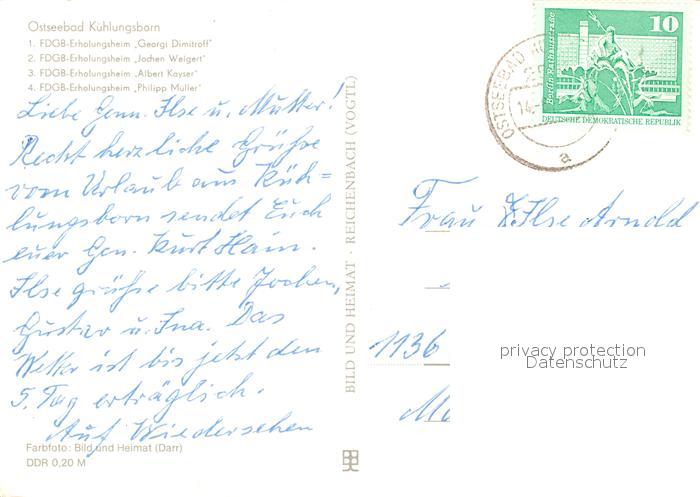 Ostseebad Kühlungsborn
1. FDGB-Erholungsheim „Georgi Dimitroff"
2. FDGB-Erholungsheim „Jochen Weigert"
3. FDGB-Erholungsheim „Albert Kayser"
4. FDGB-Erholungsheim „Philipp Müller"
Liebe Genn. Ilse u. Mutter!
Recht herzliche Grüße
vom Urlaub aus Küh=
lungsborn sendet Euch
euer Gen. Kurt Hain.
Ilse grüße bitte Jochen,
Gustav u. Ina. Das
Wetter ist bis jetzt den
5. Tag erträglich.
Auf Wiedersehen
Farbfoto: Bild und Heimat (Darr)
DDR 0,20 M
BILD UND HEIMAT · REICHENBACH (VOGTL)
10
Berlin Rathausstraße
DEUTSCHE DEMOKRATISCHE REPUBLIK
OSTSEEBAD
14.
a
Frau Ilse Arnold
1136
privacy protection
Datenschutz